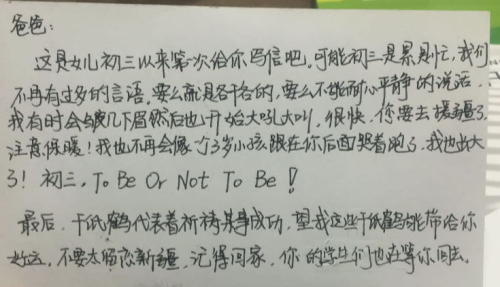 爸爸:
这是女儿初三以来第一次给你写信吧。可能初三是累是忙,我们
不再有过多的言语。要么就是各干各的,要么不能耐心平静的说话。
我有时会皱几下眉然后也开始大吼大叫。很快,你要去援疆了,
注意保暖!我也不再会像个3岁小孩跟在你后面哭着跑了,我也长大
了!初三,To Be Or Not To Be!
最后,千纸鹤代表着祈祷某事成功,望我这些千纸鹤能带给你
好运,不要太留恋新疆,记得回家,你的学生们也在等你回去。